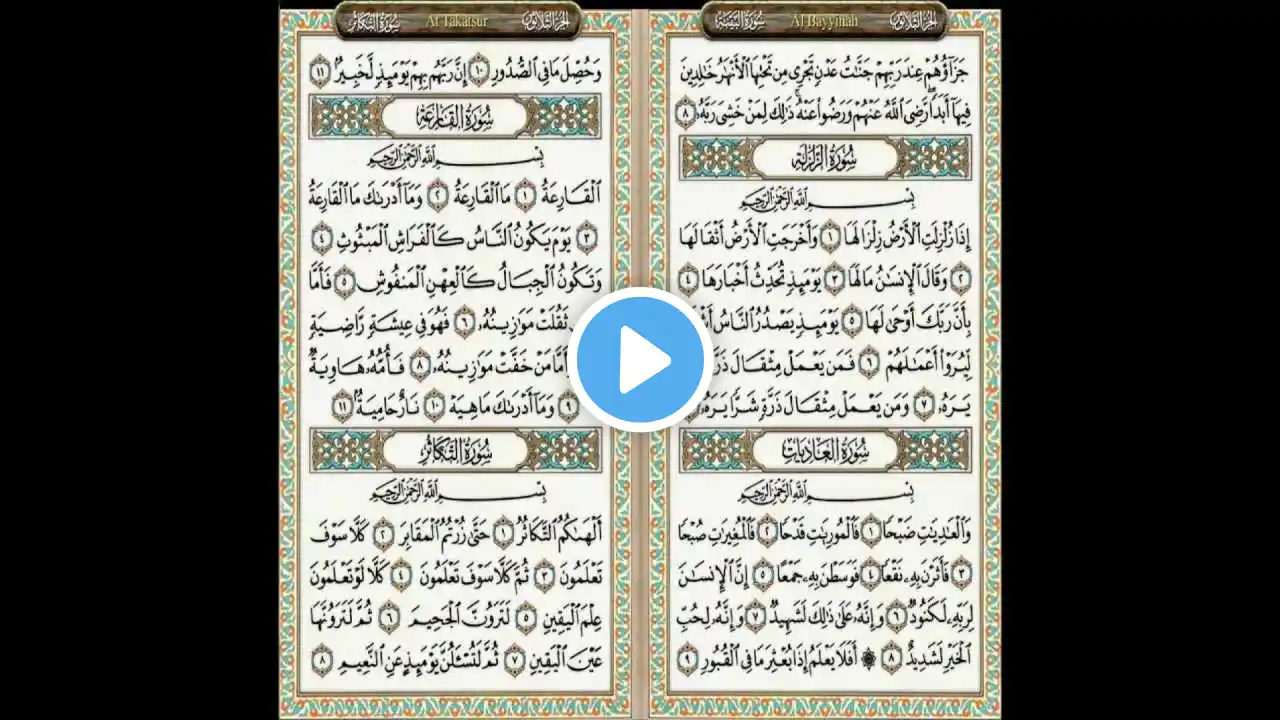 الجزء الثلاثون Al Bayyinah سورة البينة
جَزَاؤُهُمْ عِندَ رَبِّهِمْ جَنَّٰتُ عَدْنٍ تَجْرِى مِن تَحْتِهَا ٱلْأَنْهَٰرُ خَٰلِدِينَ
فِيهَآ أَبَدًا ۖ رَّضِىَ ٱللَّهُ عَنْهُمْ وَرَضُوا۟ عَنْهُ ۚ ذَٰلِكَ لِمَنْ خَشِىَ رَبَّهُۥ ٨
سُورَةُ الزَّلْزَلَةِ
بِسْمِ ٱللَّهِ ٱلرَّحْمَٰنِ ٱلرَّحِيمِ
إِذَا زُلْزِلَتِ ٱلْأَرْضُ زِلْزَالَهَا ١ وَأَخْرَجَتِ ٱلْأَرْضُ أَثْقَالَهَا
٢ وَقَالَ ٱلْإِنسَٰنُ مَا لَهَا ٣ يَوْمَئِذٍ تُحَدِّثُ أَخْبَارَهَا ٤
بِأَنَّ رَبَّكَ أَوْحَىٰ لَهَا ٥ يَوْمَئِذٍ يَصْدُرُ ٱلنَّاسُ
لِّيُرَوْا۟ أَعْمَٰلَهُمْ ٦ فَمَن يَعْمَلْ مِثْقَالَ
يَرَهُۥ ٧ وَمَن يَعْمَلْ مِثْقَالَ ذَرَّةٍ شَرًّا يَرَهُۥ
سُورَةُ الْعَادِيَاتِ
بِسْمِ ٱللَّهِ ٱلرَّحْمَٰنِ ٱلرَّحِيمِ
وَٱلْعَٰدِيَٰتِ ضَبْحًا ١ فَٱلْمُورِيَٰتِ قَدْحًا ٢ فَٱلْمُغِيرَٰتِ صُبْحًا
٣ فَأَثَرْنَ بِهِۦ نَقْعًا ٤ فَوَسَطْنَ بِهِۦ جَمْعًا ٥ إِنَّ ٱلْإِنسَٰنَ
لِرَبِّهِۦ لَكَنُودٌ ٦ وَإِنَّهُۥ عَلَىٰ ذَٰلِكَ لَشَهِيدٌ ٧ وَإِنَّهُۥ لِحُبِّ
ٱلْخَيْرِ لَشَدِيدٌ ٨ ۞ أَفَلَا يَعْلَمُ إِذَا بُعْثِرَ مَا فِى ٱلْقُبُورِ ٩
الجزء الثلاثون At Takatsur سورة التكاثر
وَحُصِّلَ مَا فِى ٱلصُّدُورِ ١٠ إِنَّ رَبَّهُم بِهِمْ يَوْمَئِذٍ لَّخَبِيرٌۢ ١١
سُورَةُ الْقَارِعَةِ
بِسْمِ ٱللَّهِ ٱلرَّحْمَٰنِ ٱلرَّحِيمِ
ٱلْقَارِعَةُ ١ مَا ٱلْقَارِعَةُ ٢ وَمَآ أَدْرَىٰكَ مَا ٱلْقَارِعَةُ
٣ يَوْمَ يَكُونُ ٱلنَّاسُ كَٱلْفَرَاشِ ٱلْمَبْثُوثِ ٤
وَتَكُونُ ٱلْجِبَالُ كَٱلْعِهْنِ ٱلْمَنفُوشِ ٥ فَأَمَّا
ثَقُلَتْ مَوَٰزِينُهُۥ ٦ فَهُوَ فِى عِيشَةٍ رَّاضِيَةٍ
مَنْ خَفَّتْ مَوَٰزِينُهُۥ ٨ فَأُمُّهُۥ هَاوِيَةٌ
٩ وَمَآ أَدْرَىٰكَ مَا هِيَهْ ١٠ نَارٌ حَامِيَةٌۢ ١١
سُورَةُ التَّكَاثُرِ
بِسْمِ ٱللَّهِ ٱلرَّحْمَٰنِ ٱلرَّحِيمِ
أَلْهَىٰكُمُ ٱلتَّكَاثُرُ ١ حَتَّىٰ زُرْتُمُ ٱلْمَقَابِرَ ٢ كَلَّا سَوْفَ
تَعْلَمُونَ ٣ ثُمَّ كَلَّا سَوْفَ تَعْلَمُونَ ٤ كَلَّا لَوْ تَعْلَمُونَ
عِلْمَ ٱلْيَقِينِ ٥ لَتَرَوُنَّ ٱلْجَحِيمَ ٦ ثُمَّ لَتَرَوُنَّهَا
عَيْنَ ٱلْيَقِينِ ٧ ثُمَّ لَتُسْـَٔلُنَّ يَوْمَئِذٍ عَنِ ٱلنَّعِيمِ ٨